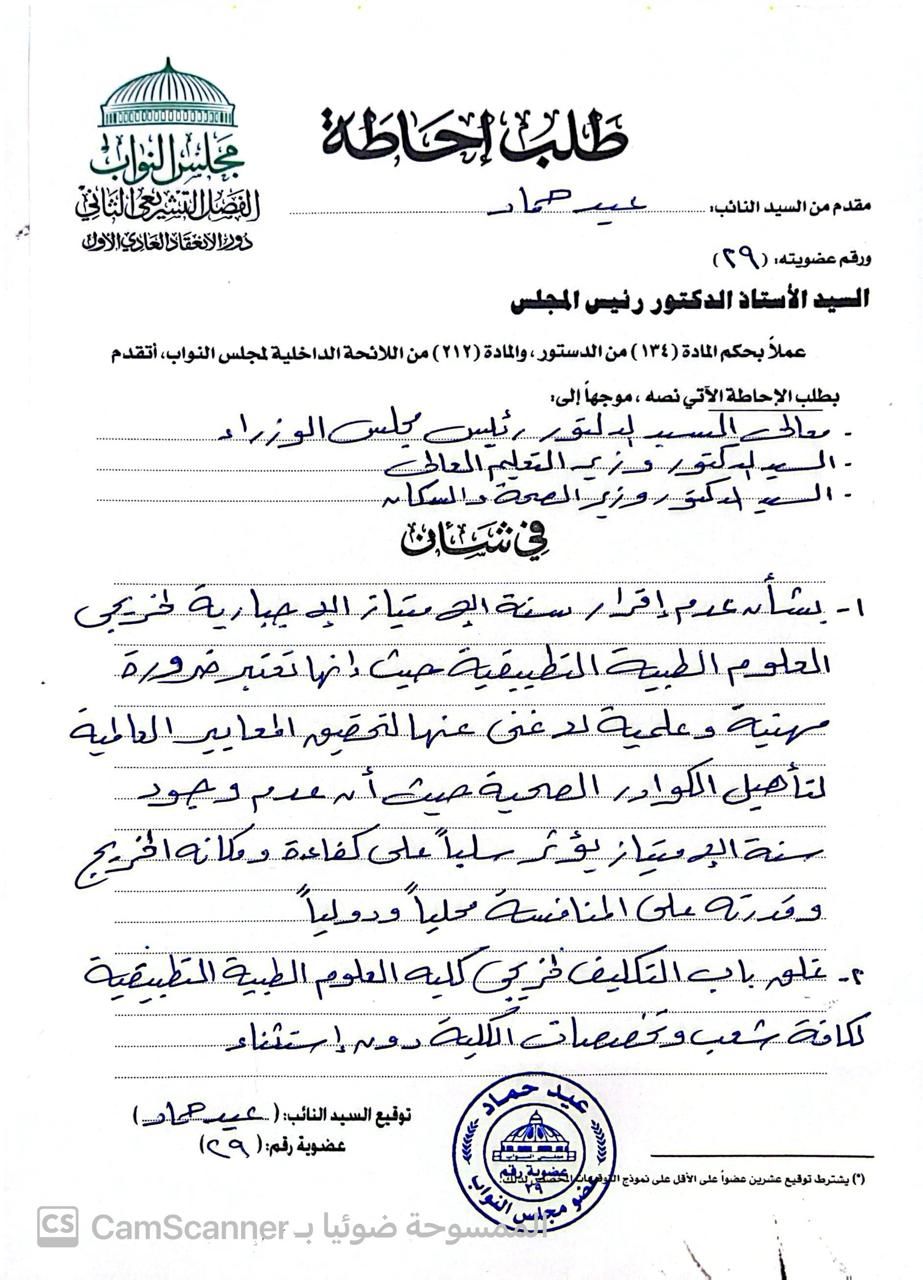 مجلس النواب
الفصل التشريعى الثانى
دور الانعقاد العادى الأول
طلب إحاطة
مقدم من السيد النائب: عيد حماد
ورقم عضويته: (٢٩)
السيد الأستاذ الدكتور رئيس المجلس
عملاً بحكم المادة (١٣٤) من الدستور، والمادة (٢١٢) من اللائحة الداخلية لمجلس النواب، أتقدم
بطلب الإحاطة الآتي نصه، موجهاً إلى:
- معالى السيد الدكتور رئيس مجلس الوزراء
- السيد الدكتور وزير التعليم العالى
- السيد الدكتور وزير الصحة والسكان
في شأن
١- بشأن عدم إقرار سنة الإمتياز الإجبارية لخريجى
العلوم الطبية التطبيقية حيث إنها تعتبر ضرورة
مهنية وعلمية لا غنى عنها لتحقيق المعايير العالمية
لتأهيل الكوادر الصحية حيث أن عدم وجود
سنة الإمتياز يؤثر سلباً على كفاءة ومكانه الخريج
وقدرته على المنافسة محلياً ودولياً
٢- غلق باب التكليف لخريجى كليه العلوم الطبية التطبيقية
لكافة شعب وتخصصات الكلية دون إستثناء
توقيع السيد النائب: (عيد حماد)
عضوية رقم: (٢٩)
عيد حماد
مجلس النواب
عضوية رقم
٢٩
عضو مجلس النواب
(*) يشترط توقيع عشرين عضواً على الأقل على نموذج التوقيعات المخصص لذلك.
CS CamScanner الممسوحة ضوئيا بـ